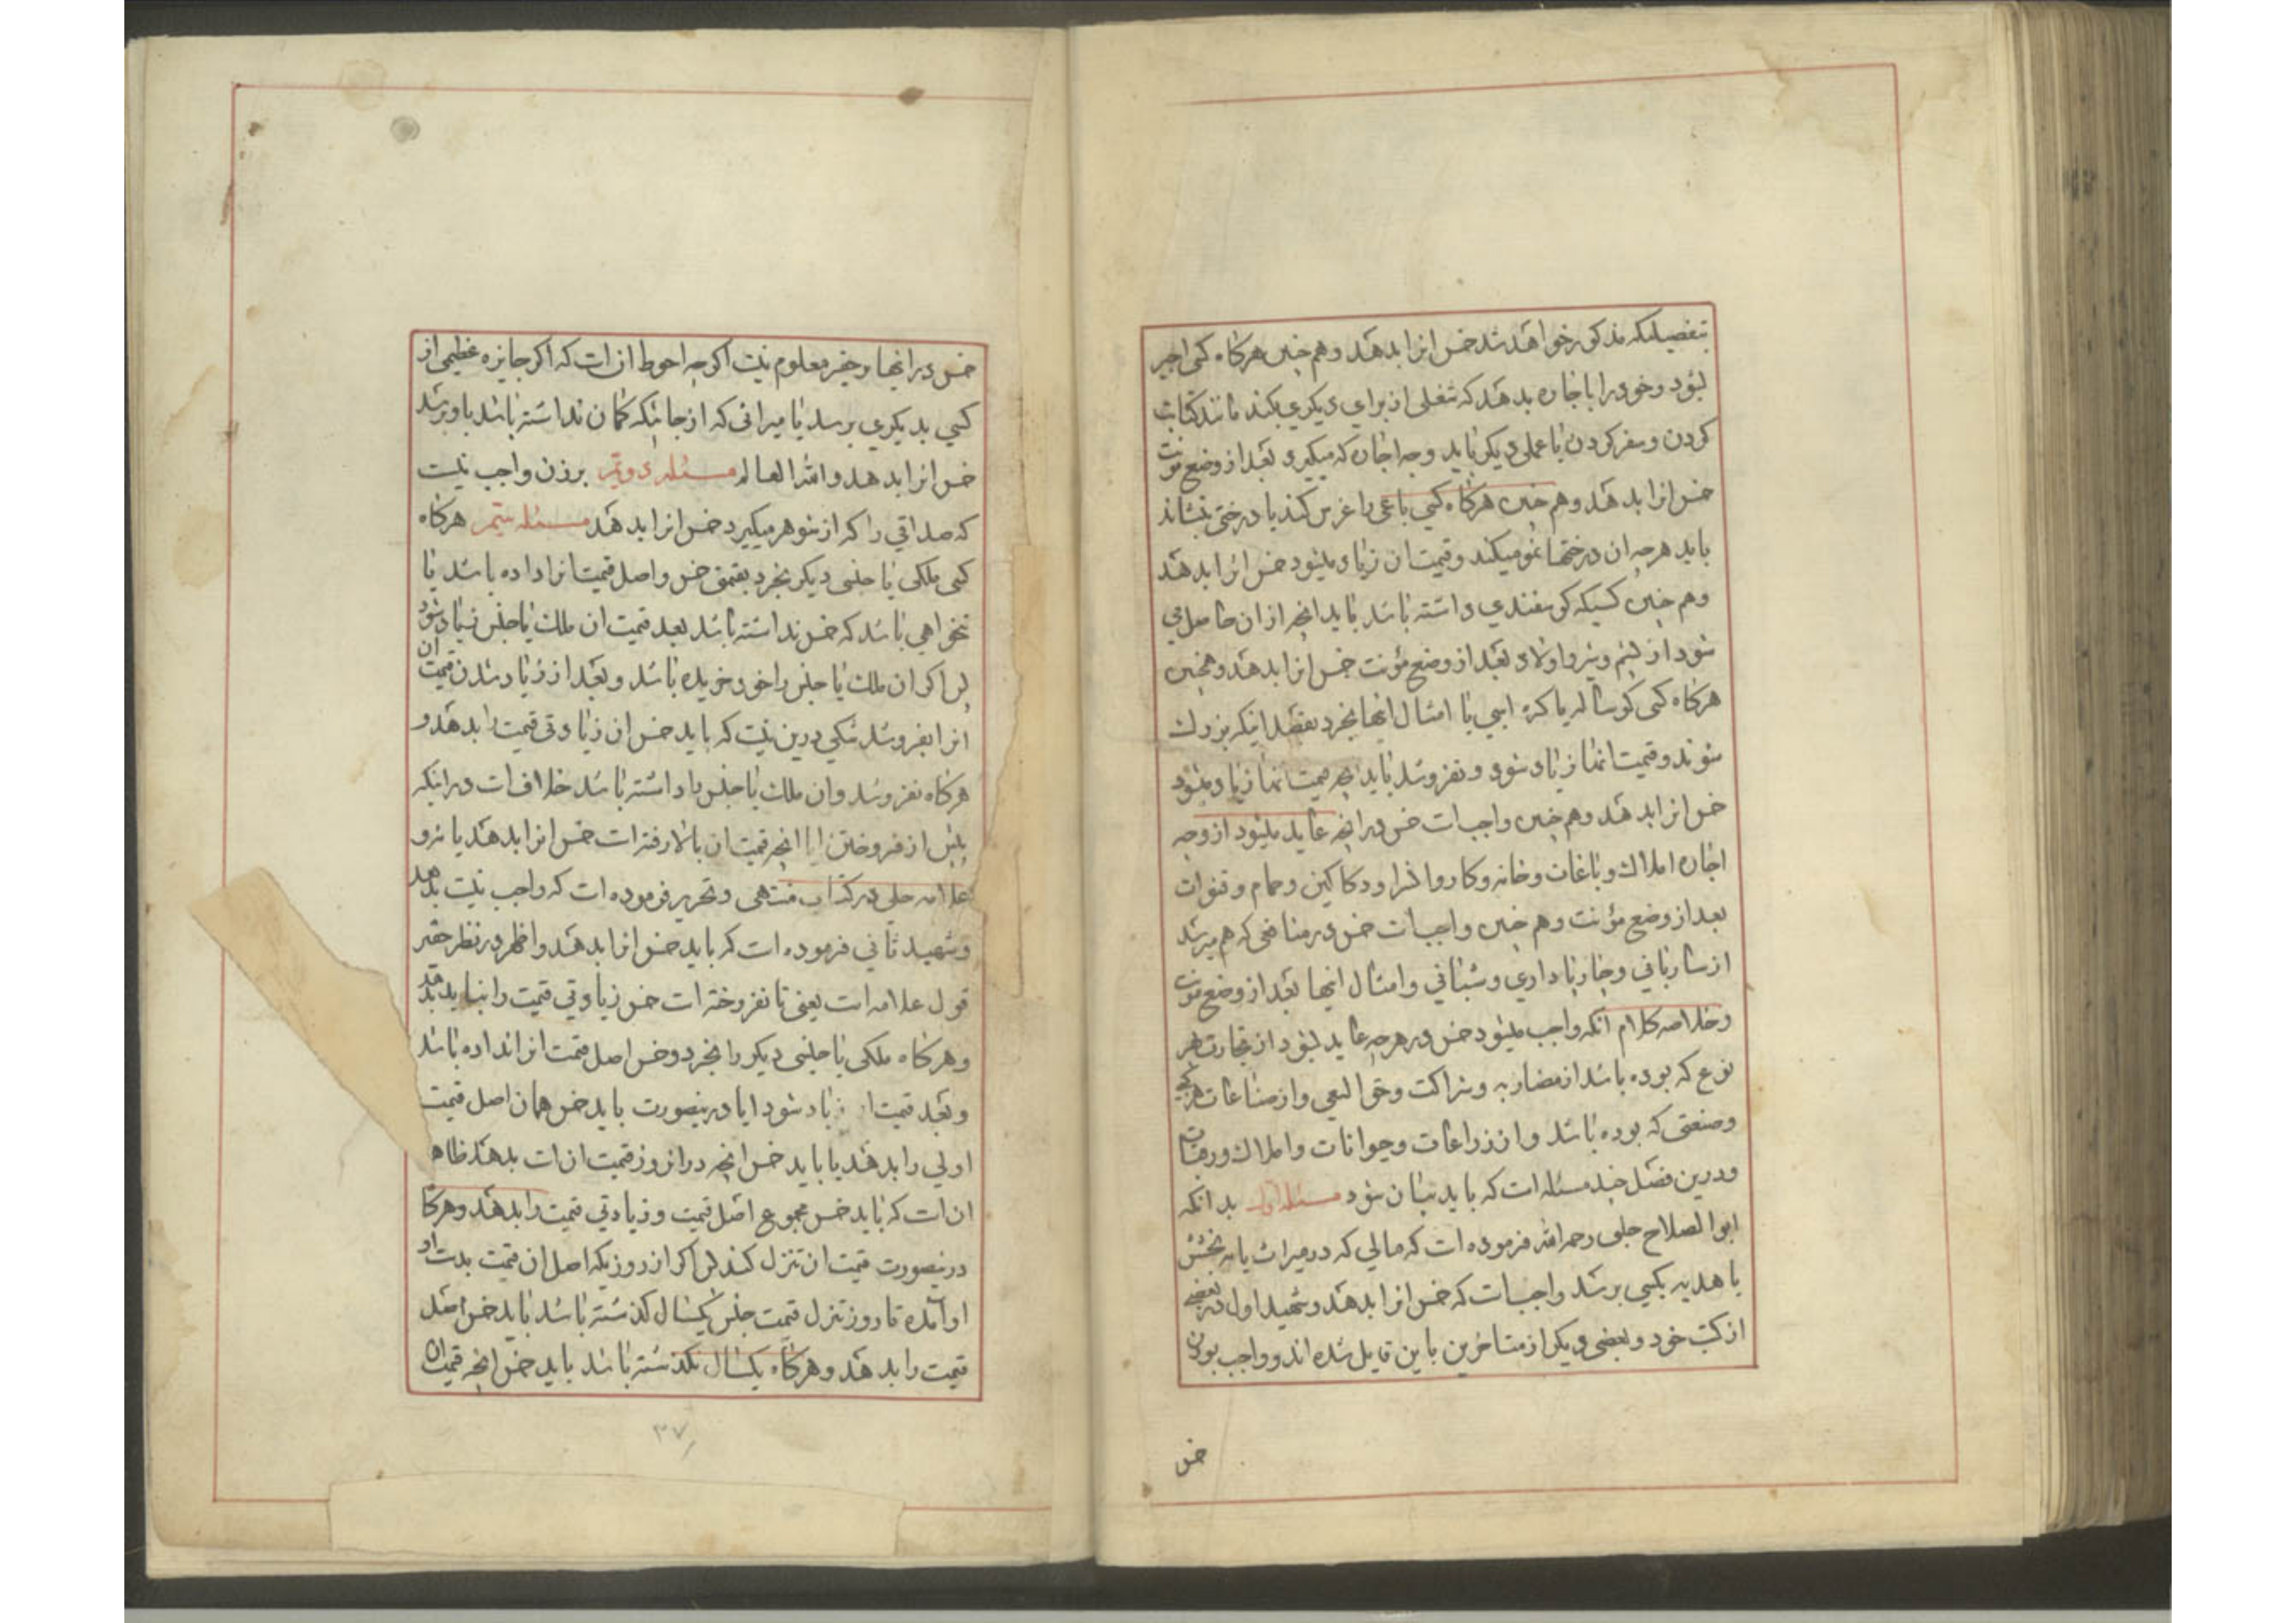 بتفصیلیکه مذکور خواهد شد خمس انرا بدهد و هم چنین هرکاه کسی اجیر
بشود و خود را باجاره بدهد که شغلی از برای دیکری بکند مانند کتابت
کردن و سفر کردن یا عملی دیکر باید وجه اجاره که میکیرد بعد از وضع مؤنت
خمس انرا بدهد و هم چنین هرکاه کسی باغی را غرس کند یا درختی بنشاند
باید هرچه ان درختها نمو میکند و قیمت ان زیاد میشود خمس انرا بدهد
و هم چنین کسیکه کوسفندی داشته باشد باید انچه از ان حاصل می
شود از پشم و شیر و اولاد بعد از وضع مؤنت خمس انرا بدهد و همچنین
هرکاه کسی کوساله یا کره اسبی یا امثال اینها بخرد بقصد اینکه بزرك
شوند و قیمت انها زیاد شود و بفروشد باید انچه قیمت انها زیاد میشود
خمس انرا بدهد و هم چنین واجبات خمس در انچه عاید میشود از وجه
اجاره املاك و باغات و خانه و کاروانسرا و دکاکین و حمام و قنوات
بعد از وضع مؤنت و هم چنین واجبات خمس در منافعی که بهم میرسد
از ساربانی و چارباداری و شبانی و امثال اینها بعد از وضع مؤنت
و خلاصه کلام انکه واجب میشود خمس در هرچه عاید بشود از تجارت هر
نوع که بوده باشد از مضاربه و شراکت و حق السعی و از صناعات هر کسبی
و صنعتی که بوده باشد و از زراعات و حیوانات و املاك و رقبات
و درین فصل چند مسئله است که باید بیان شود مسئله اول بدانکه
ابو الصلاح حلبی رحمه الله فرموده است که مالی که در میراث یا به بخشش
یا هدیه بکسی برسد واجبات که خمس انرا بدهد و شهید اول در بعضی
از کتب خود و بعضی دیکر از متاخرین باین قایل شده اند و واجب بودن
خمس
خمس در اینها بر حقیر معلوم نیست اکرچه احوط ان است که اکر جایزه عظیمی از
کسی بدیکری برسد یا میراثی که از جائیکه کمان نداشته باشد باو برسد
خمس انرا بدهد و الله العالم مسئله دویم بر زن واجب نیست
که صداقی را که از شوهر میکیرد خمس انرا بدهد مسئله سیم هرکاه
کسی ملکی یا جنسی دیکر بخرد بقیمتی خمس و اصل قیمت انرا داده باشد یا
تنخواهی باشد که خمس نداشته باشد بعد قیمت ان ملك یا جنس زیاد شود
پس اکر ان ملك یا جنس را خود خریده باشد و بعد از زیاد شدن قیمت ان
انرا بفروشد شکی درین نیست که باید خمس ان زیادتی قیمت را بدهد و
هرکاه نفروشد و ان ملك یا جنس را داشته باشد خلاف است در اینکه
پیش از فروختن ایا انچه قیمت ان بالا رفته است خمس انرا بدهد یا نه و
علامه حلی در کتاب منتهی و تحریر فرموده است که واجب نیست بدهد
و شهید ثانی فرموده است که باید خمس انرا بدهد و اظهر در نظر حقیر
قول علامه است یعنی تا نفروخته است خمس زیادتی قیمت را نباید بدهد
و هرکاه ملکی یا جنسی دیکر را بخرد و خمس اصل قیمت انرا نداده باشد
و بعد قیمت ان زیاد شود ایا درینصورت باید خمس همان اصل قیمت
اولی را بدهد یا باید خمس انچه در انروز قیمت ان است بدهد ظاهر
ان است که باید خمس مجموع اصل قیمت و زیادتی قیمت را بدهد و هرکاه
درینصورت قیمت ان تنزل کند پس اکر از روزیکه اصل ان قیمت بدست
او آمده تا روز تنزل قیمت جنس یکسال کذشته باشد باید خمس اصل
قیمت را بدهد و هرکاه یکسال نکذشته باشد باید خمس انچه قیمت ان
۳۷